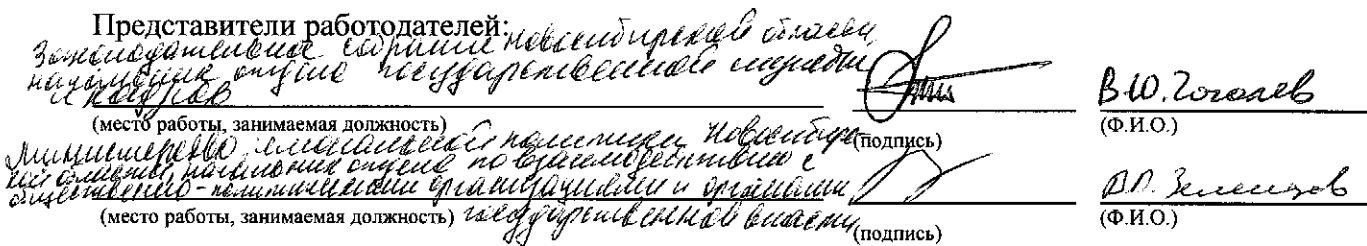 Представители работодателей:
Законодательное собрание Новосибирской области,
начальник отдела государственной службы
и кадров
В.Ю. Гоголев
(место работы, занимаемая должность)
(подпись)
(Ф.И.О.)
Министерство региональной политики Новосибирс
кой области, начальник отдела по взаимодействию с
общественно-политическими организациями и органами
В.П. Зеленцов
(место работы, занимаемая должность) государственной власти
(подпись)
(Ф.И.О.)